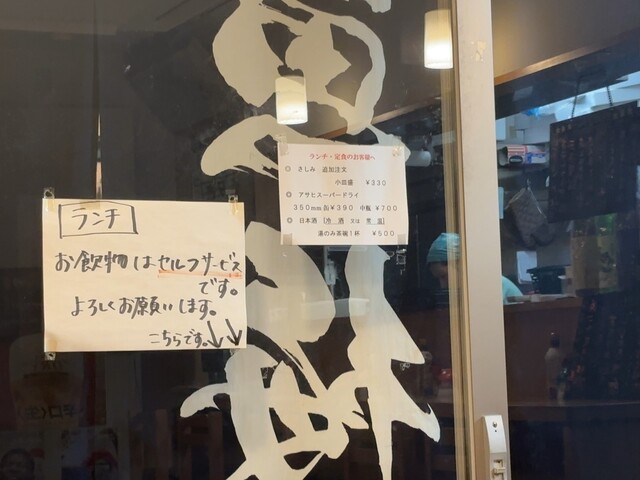 ランチ
お飲物はセルフサービス
です。
よろしくお願いします。
こちらです。↓↓
ランチ・定食のお客様へ
◎ さしみ 追加注文
小皿盛 ¥330
◎ アサヒスーパードライ
350mm缶¥390 中瓶 ¥700
◎ 日本酒 [冷酒 又は 常温]
湯のみ茶碗1杯 ¥500